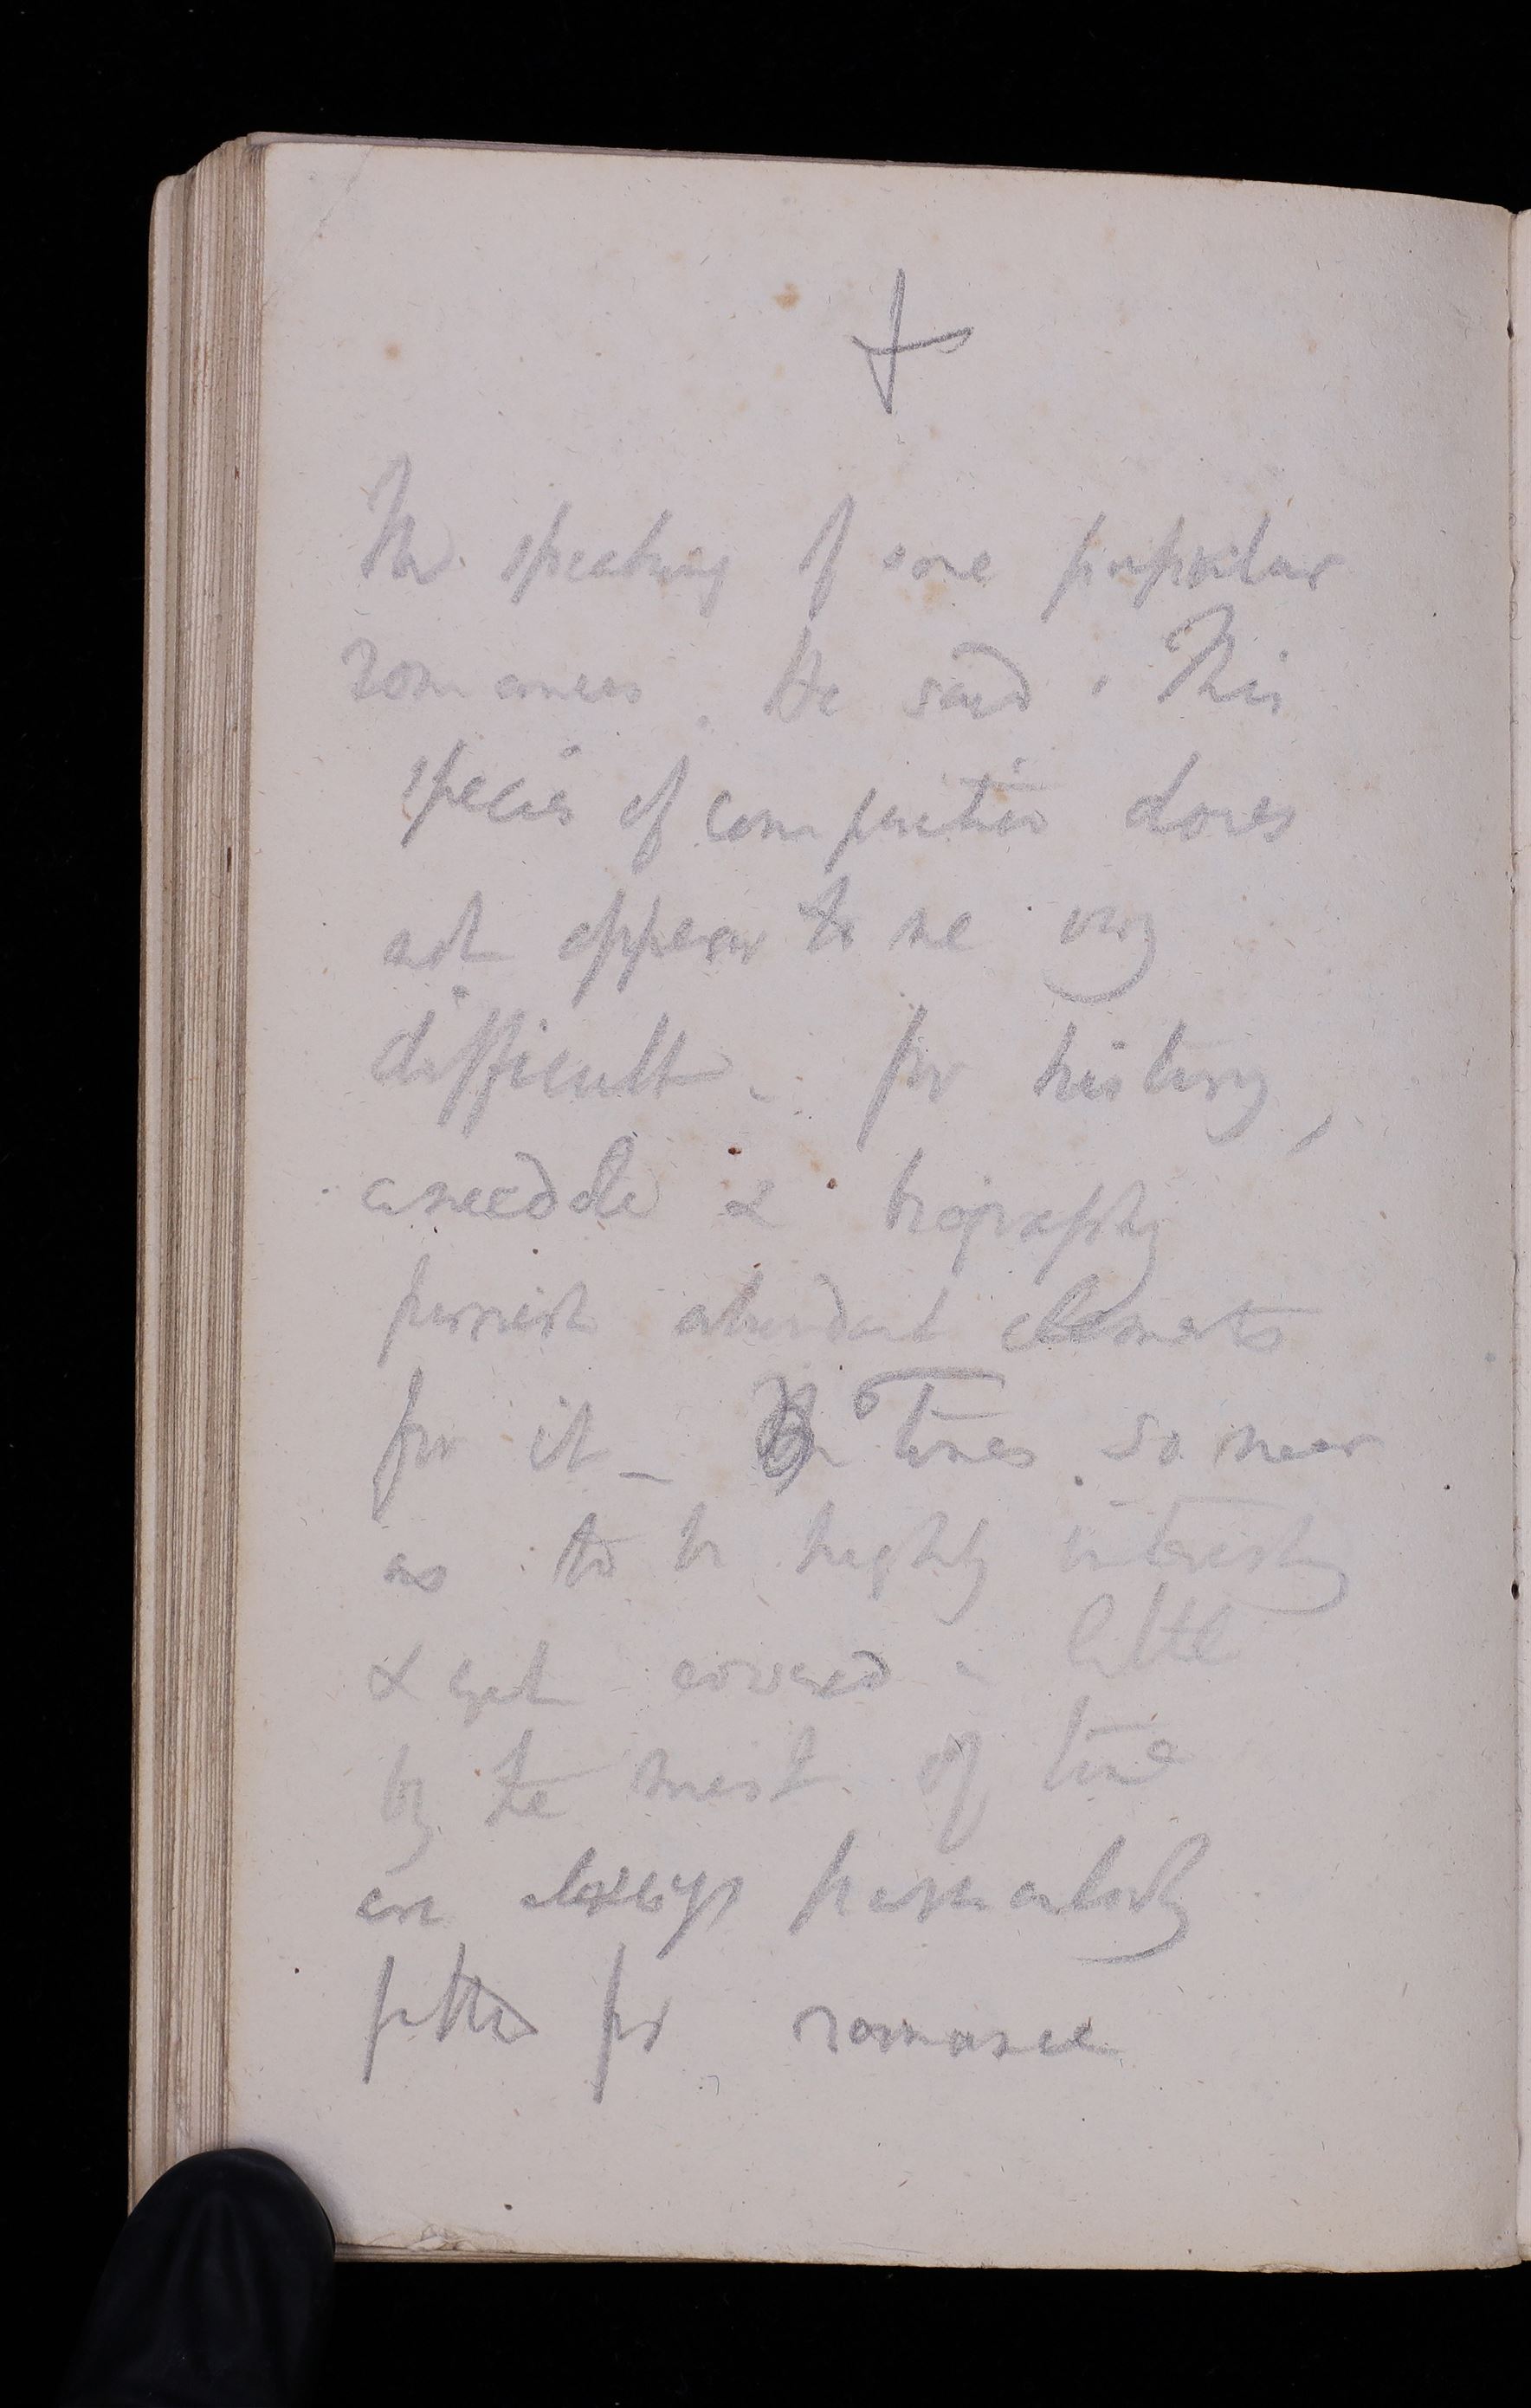 In speaking of some popular
romances. He said. This
species of composition does
not appear to me very
difficult. for history,
anecdote & biography
furnish abundant elements
for it - In times so near
as to be highly interesting
& yet covered a little
by the mist of time
are always particularly
fitted for romance